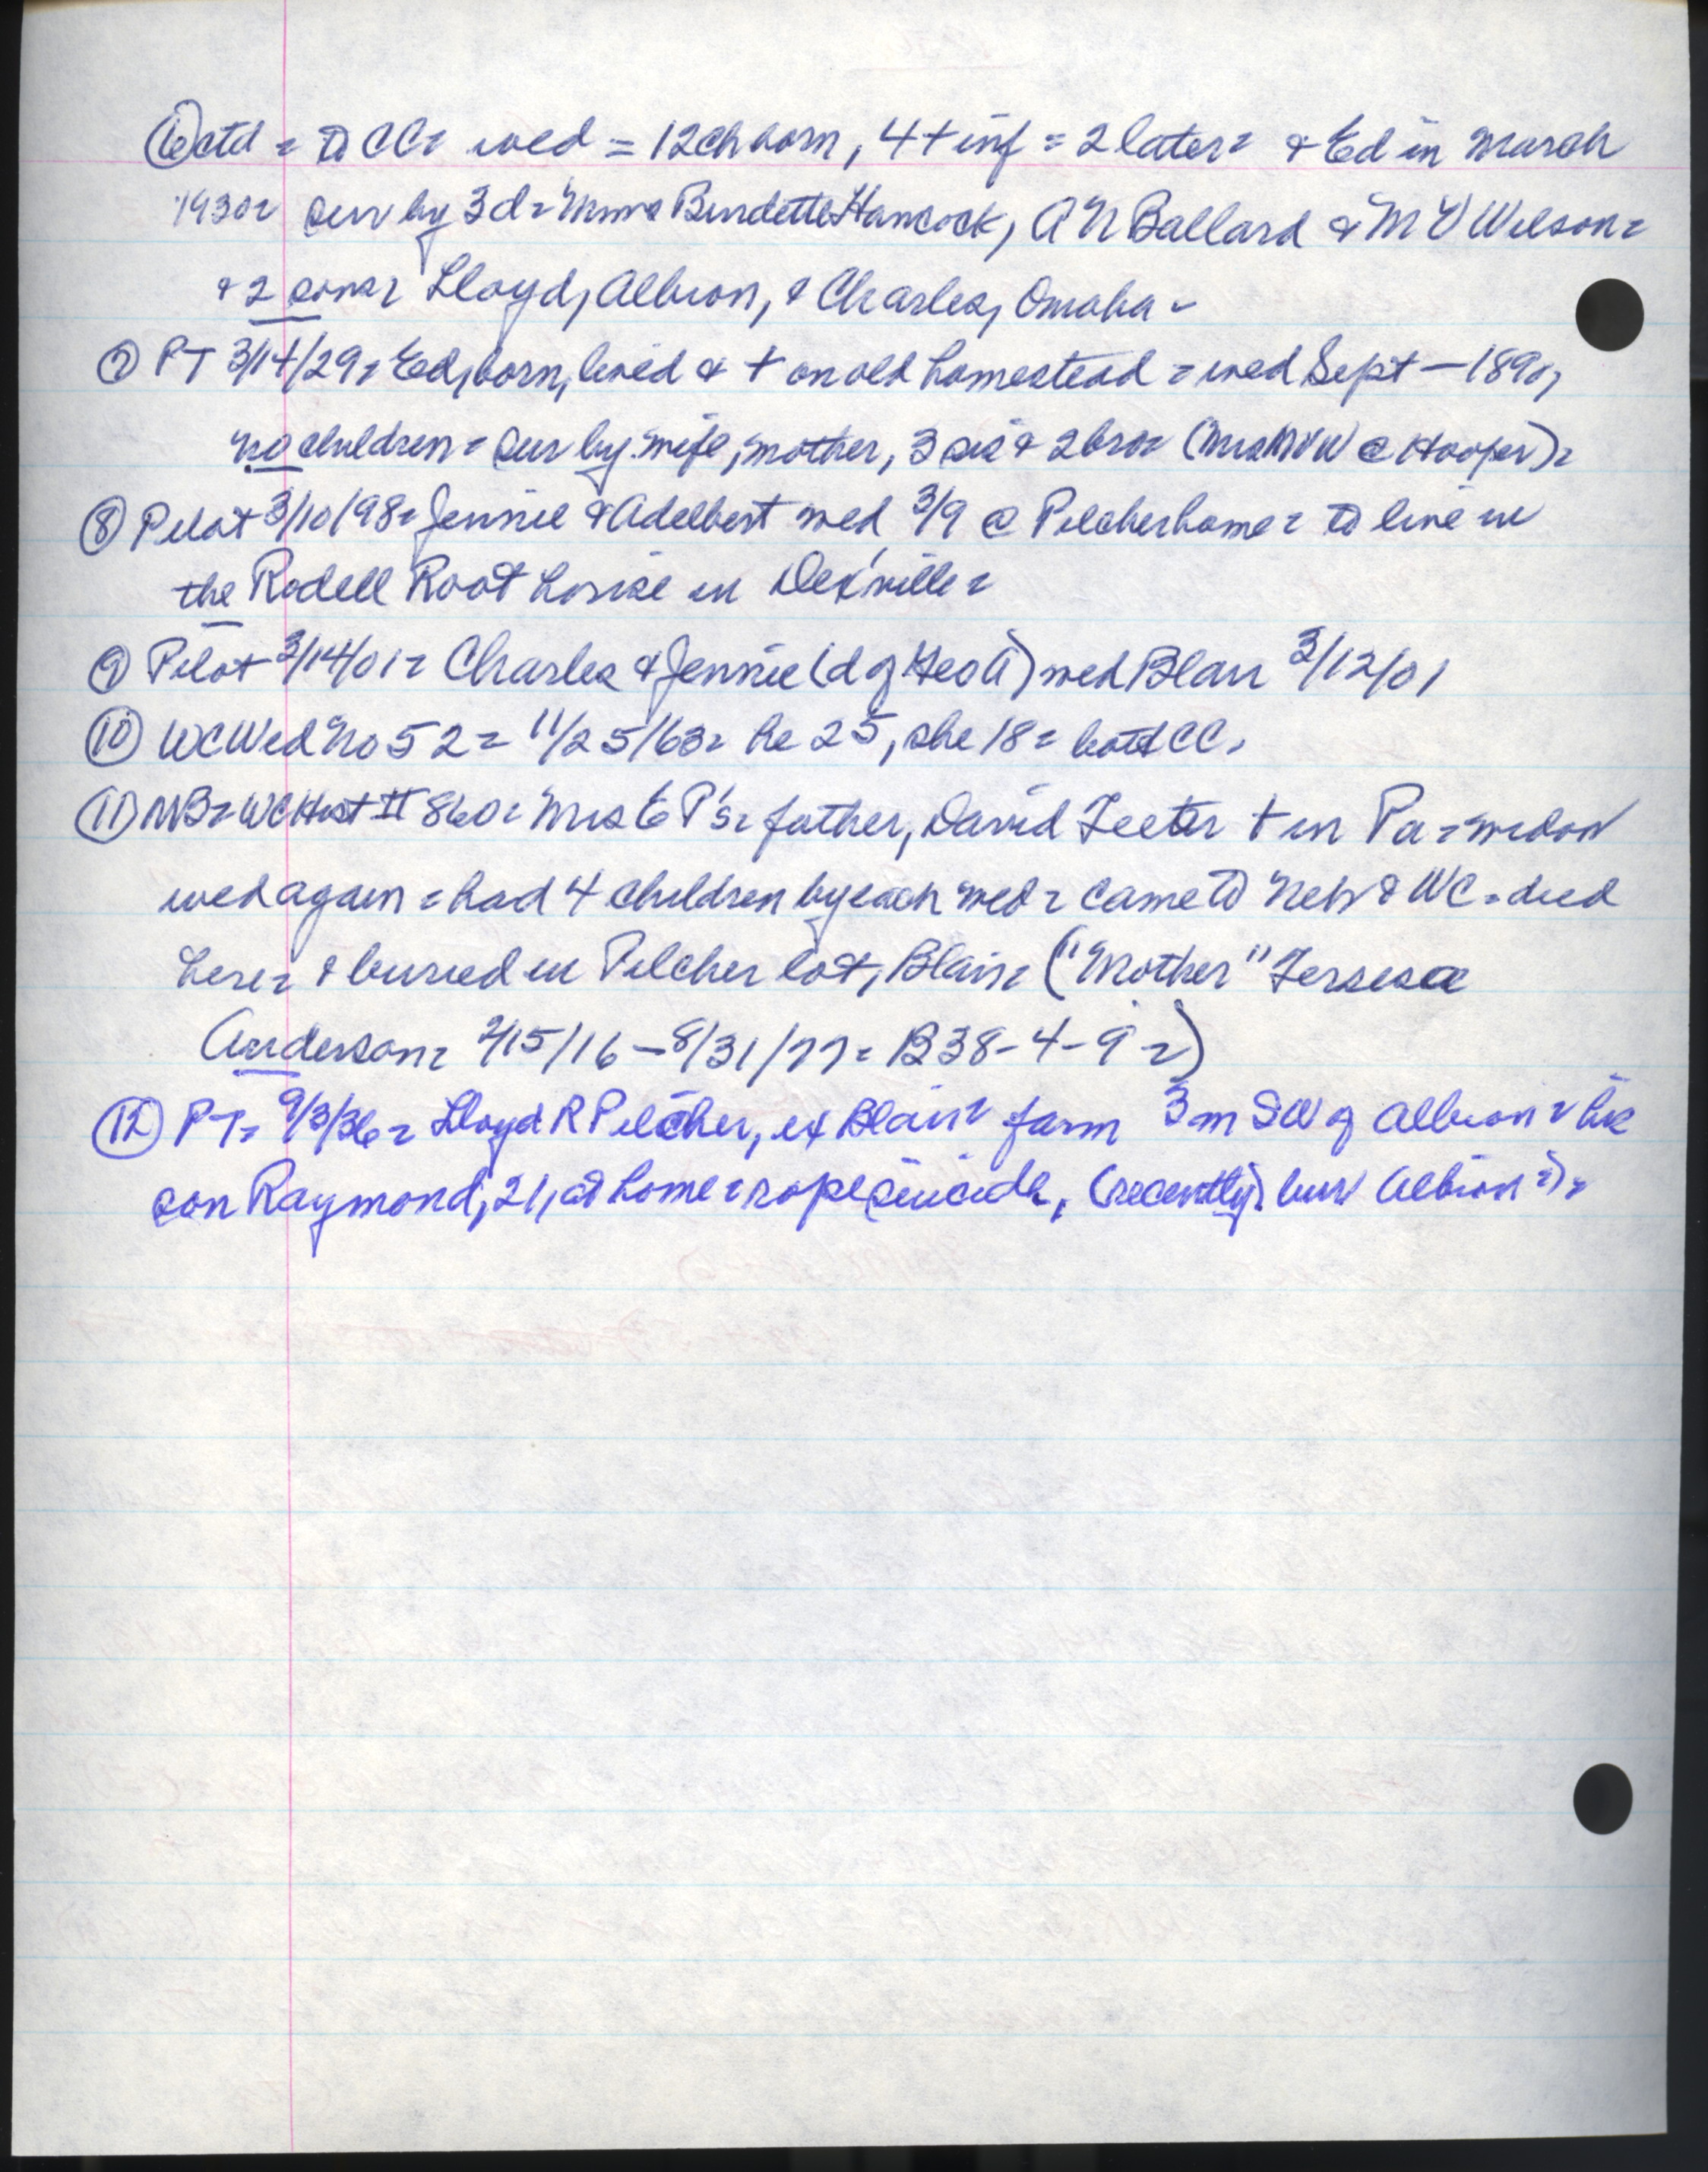 ⑥ctd = to CC= wed = 12 ch born, 4 + inf = 2 later= & Ed in March
1930= sur by 3 d= Mmes Burdette Hancock, A N Ballard & M V Wilson=
& 2 sons= Lloyd, Albion, & Charles, Omaha -
⑦ PT 3/14/29= Ed, born, lived & + on old homestead = wed Sept — 1890,
no children = sur by wife, mother, 3 sis & 2 bro= (Mrs M V W @ Hooper)=
⑧ Pilot 3/10/98= Jennie & Adelbert wed 3/9 @ Pilcher home= to live in
the Rodell Root house in DeS'ville=
⑨ Pilot 3/14/01= Charles & Jennie (d of Geo A) wed Blair 3/12/01
⑩ WC Wed No 52 = 11/25/63= he 25, she 18= both CC,
⑪ NB= WC Hist II 860= Mrs E P's= father, David Teeter + in Pa = widow
wed again = had 4 children by each wed = came to Neb & WC = died
here= & buried in Pilcher lot, Blair= ("Mother"
Anderson= 2/15/16 – 8/31/77= B38-4-9=)
⑫ PT= 9/3/36= Lloyd R Pilcher, ex Blair= farm 3 m SW of Albion= his
son Raymond, 21, at home= rope suicide, (recently) bur Albion=)=